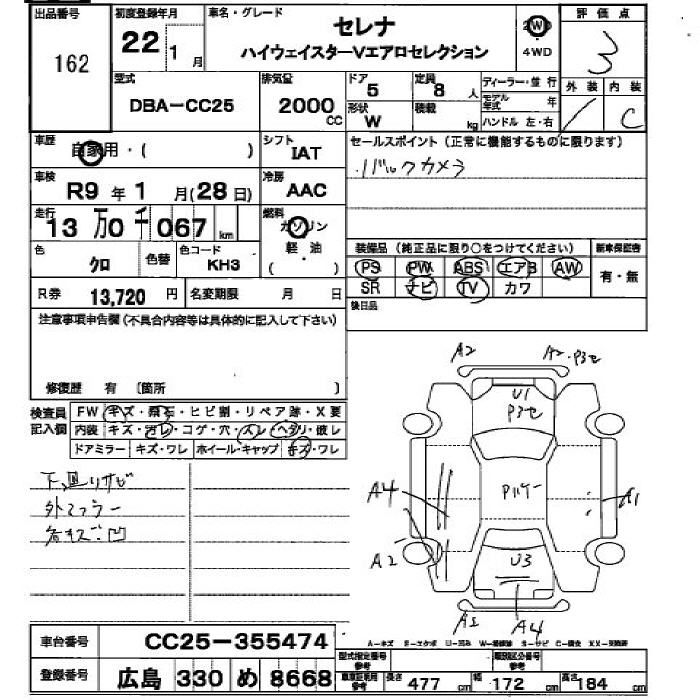 出品番号 162
初度登録年月 22年 1月
車名・グレード セレナ
ハイウェイスターVエアロセレクション
2WD
4WD
評価点 3
外装 内装 C
型式 DBA-CC25
排気量 2000 CC
ドア 5
形状 W
定員 8 人
積載 kg
ディーラー・並行
モデル年式 年
ハンドル 左・右
車歴 自家用・( )
シフト IAT
車検 R9年1月(28日)
冷房 AAC
走行 13万0千067km
燃料 ガソリン
軽・油
( )
色 クロ
色替
色コード KH3
R券 13,720円
名変期限 月 日
セールスポイント(正常に機能するものに限ります)
バックカメラ
装備品(純正品に限り○をつけてください)
新車保証書
PS PW ABS エアB AW
SR ナビ TV カワ
有・無
後日品
注意事項申告欄(不具合内容等は具体的に記入して下さい)
修復歴 有 〔箇所 〕
検査員記入欄
FW キズ・飛石・ヒビ割・リペア跡・X要
内装 キズ・汚レ・コゲ・穴・スレ・ヘタリ・破レ
ドアミラー キズ・ワレ ホイール・キャップ キズ・ワレ
下廻リサビ
各キズ凹
A2
A2・P3セ
U1
P3セ
A4
Pハケー
A1
A2
U3
A2
A4
A-キズ E-エクボ U-凹み W-補修跡 S-サビ C-腐食 XX-交換済
車台番号 CC25-355474
登録番号 広島 330 め 8668
型式指定番号 参考
類別区分番号 参考
車車証寸用 参考
長さ 477 cm
幅 172 cm
高さ 184 cm